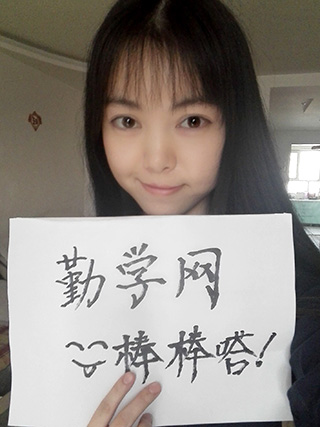 勤学网
棒棒嗒!